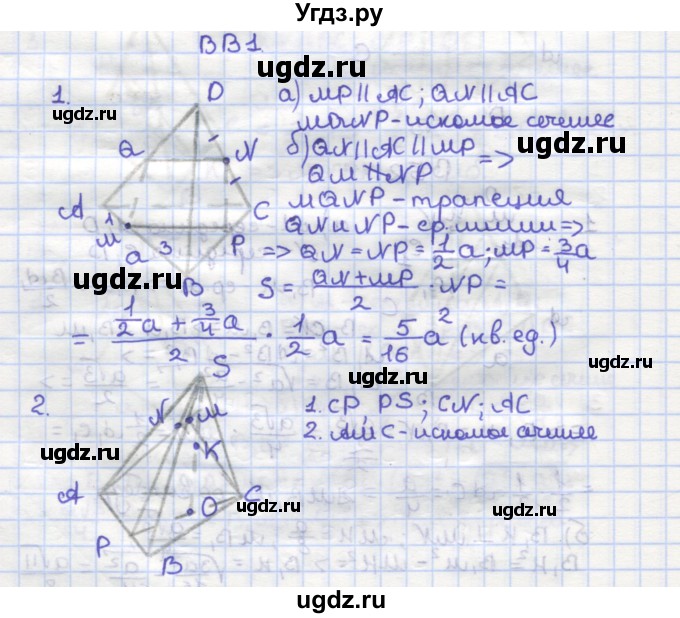 Угдз.ру
ВВ1
ugdz.ru
1.
D
ugdz.ru
а) MP || AC; QN || AC
MQNP - искомое сечение
ugdz.ru
Q
N
б) QN || AC || MP
QM ∦ NP
=>
A
C
MQNP - трапеция
M
1
P
QN и NP - ср. линии =>
a
3
=> QN = NP = 1/2 a; MP = 3/4 a
ugdz.ru
B
S = (QN + MP)/2 · NP =
= (1/2 a + 3/4 a)/2 · 1/2 a = 5/16 a² (кв. ед.)
S
ugdz.ru
2.
N
M
1. CP, PS; CN; AC
2. AMC - искомое сечение
ugdz.ru
K
A
C
O
ugdz.ru
P
B
ugdz.ru
ugdz.ru